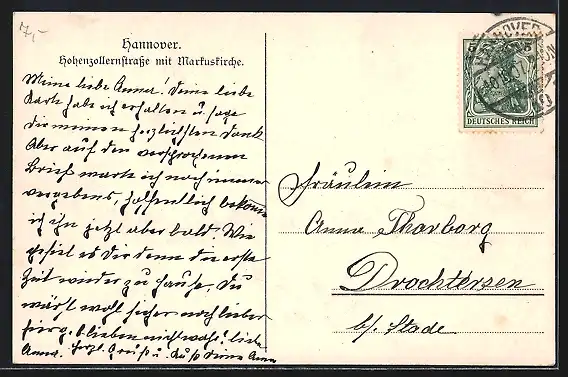 7,-
Hannover.
Hohenzollernstraße mit Markuskirche.
Meine liebe Anna! Deine liebe
Karte habe ich erhalten u. sage
dir meinen herzlichsten Dank
Aber auf den versprochenen
Brief warte ich noch immer
vergebens, hoffentlich bekomme
ich ihn jetzt aber bald. Wie
gefiel es dir denn die erste
Zeit wieder zu Hause. Du
wärst wohl sicher noch lieber
hier geblieben nicht wahr? liebe
Anna. Herzl. Gruß u. Kuß deine Anna
HANNOVER
5
5
DEUTSCHES REICH
Fräulein
Anna Tharborg
Drochtersen
b/. Stade